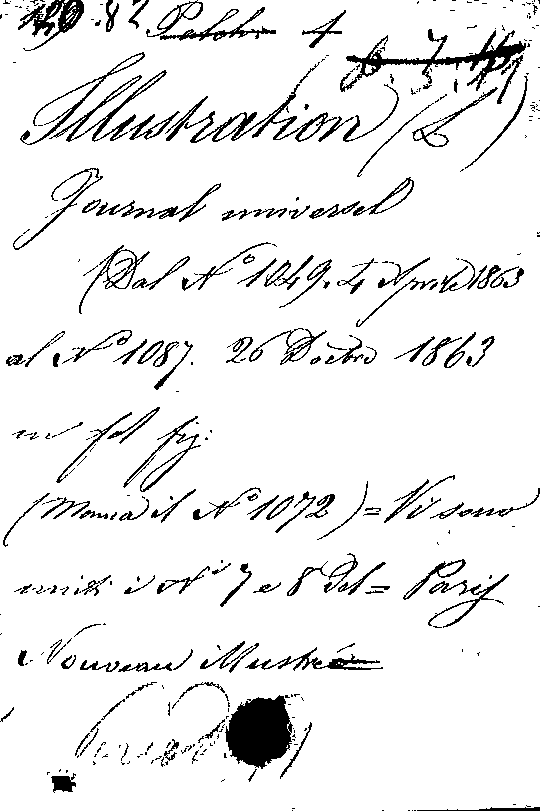 .82 Palch. 4
Illustration (L')
Journal universel
(Dal N° 1049. 4 Aprile 1863
al N° 1087. 26 Dcebre 1863
in fol fig:
(Manca il N° 1072) = Vi sono
uniti i N.i 7 e 8 del = Paris
Nouveau illustré